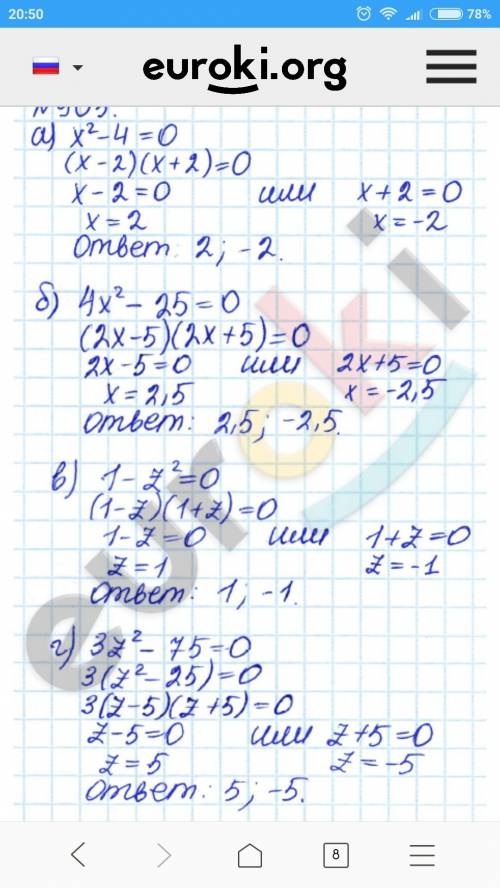 20:50 78%
euroki.org
а) x² - 4 = 0
(x - 2)(x + 2) = 0
x - 2 = 0 или x + 2 = 0
x = 2 x = -2
Ответ: 2; -2.
б) 4x² - 25 = 0
(2x - 5)(2x + 5) = 0
2x - 5 = 0 или 2x + 5 = 0
x = 2,5 x = -2,5
Ответ: 2,5; -2,5.
в) 1 - z² = 0
(1 - z)(1 + z) = 0
1 - z = 0 или 1 + z = 0
z = 1 z = -1
Ответ: 1; -1.
г) 3z² - 75 = 0
3(z² - 25) = 0
3(z - 5)(z + 5) = 0
z - 5 = 0 или z + 5 = 0
z = 5 z = -5
Ответ: 5; -5.
euroki
8